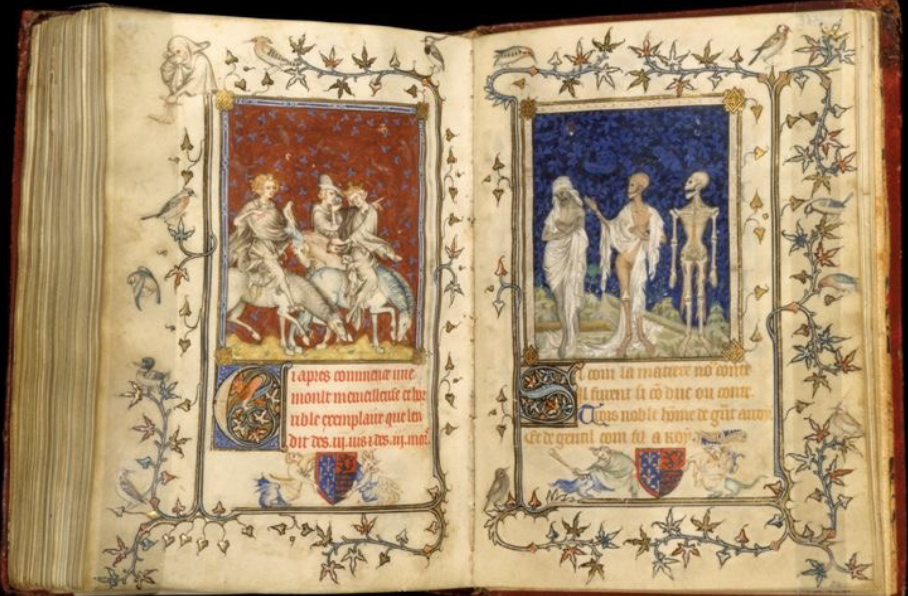 Ci apres commence une
moult merueilleuse et hor
rible exemplaire que len
dit des .iij. uis ⁊ des .iij. mor
Si com la matiere no⁹ conte
Il furent si cõ duc ou conte.
Trois noble hõme de grãt arroy
Et de gentil com fil a Roy